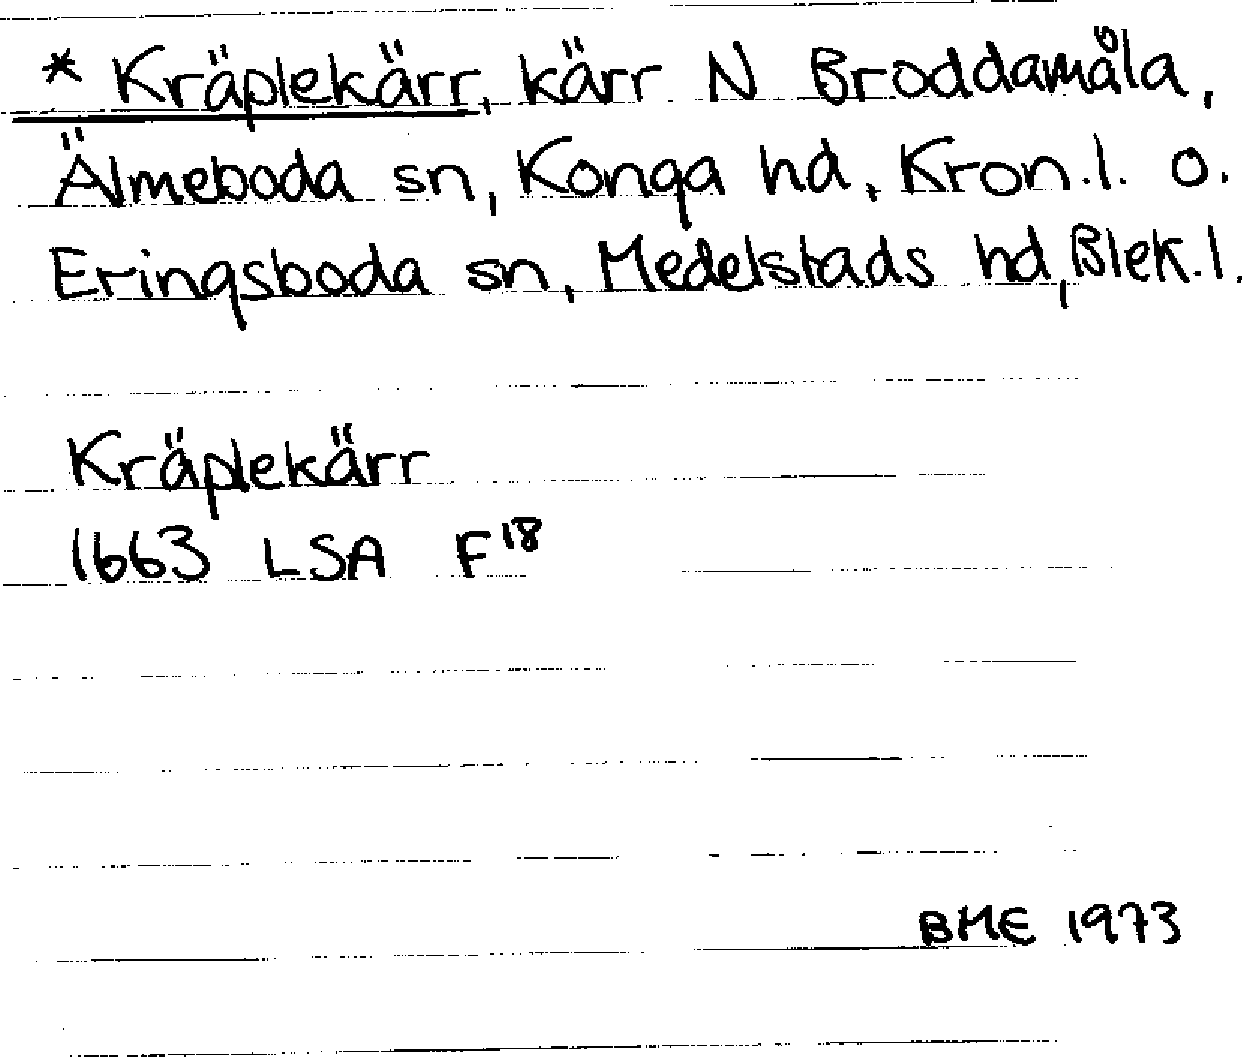 * Kräplekärr, kärr N Broddamåla,
Älmeboda sn, Konga hd, Kron.l. o.
Eringsboda sn, Medelstads hd, Blek.l.
Kräplekärr
1663 LSA F18
BME 1973